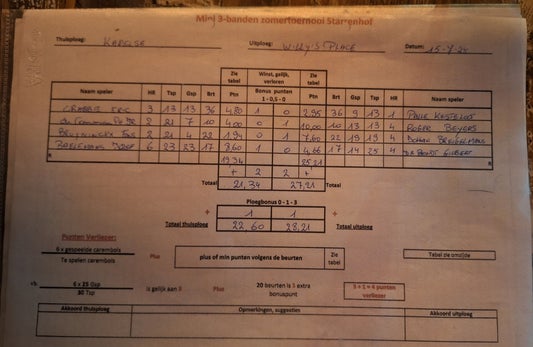 Mini 3-banden zomertoernooi Starrenhof
Thuisploeg: KAPOLSE Uitploeg: WILLY'S PLACE Datum: 15-7-24
Zie tabel Winst, gelijk, verloren Zie tabel
Naam speler HR Tsp Gsp Brt Ptn Bonus punten 1 - 0,5 - 0 Ptn Brt Gsp Tsp HR Naam speler
CRABBE ERIC 3 13 13 36 4,80 1 0 2,95 36 9 13 1
2 21 7 10 4,00 0 1 10,00 10 13 13 4 ROGER BEYERS
2 21 4 22 1,94 0 1 7,60 22 19 19 4
6 23 23 17 8,60 1 0 4,66 17 14 25 4 GILBERT
19,34 25,21
+ 2 2 +
Totaal 21,34 27,21 Totaal
Ploegbonus 0 - 1 - 3
+ 1 1 +
Totaal thuisploeg 22,60 28,21 Totaal uitploeg
Punten Verliezer:
6 x gespeelde carambols
Te spelen carambols
Plus plus of min punten volgens de beurten Zie tabel Tabel zie omzijde
vb. 6 x 25 Gsp
30 Tsp
is gelijk aan 5 Plus 20 beurten is 1 extra bonuspunt 5 + 1 = 6 punten verliezer
Akkoord thuisploeg Opmerkingen, suggesties Akkoord uitploeg